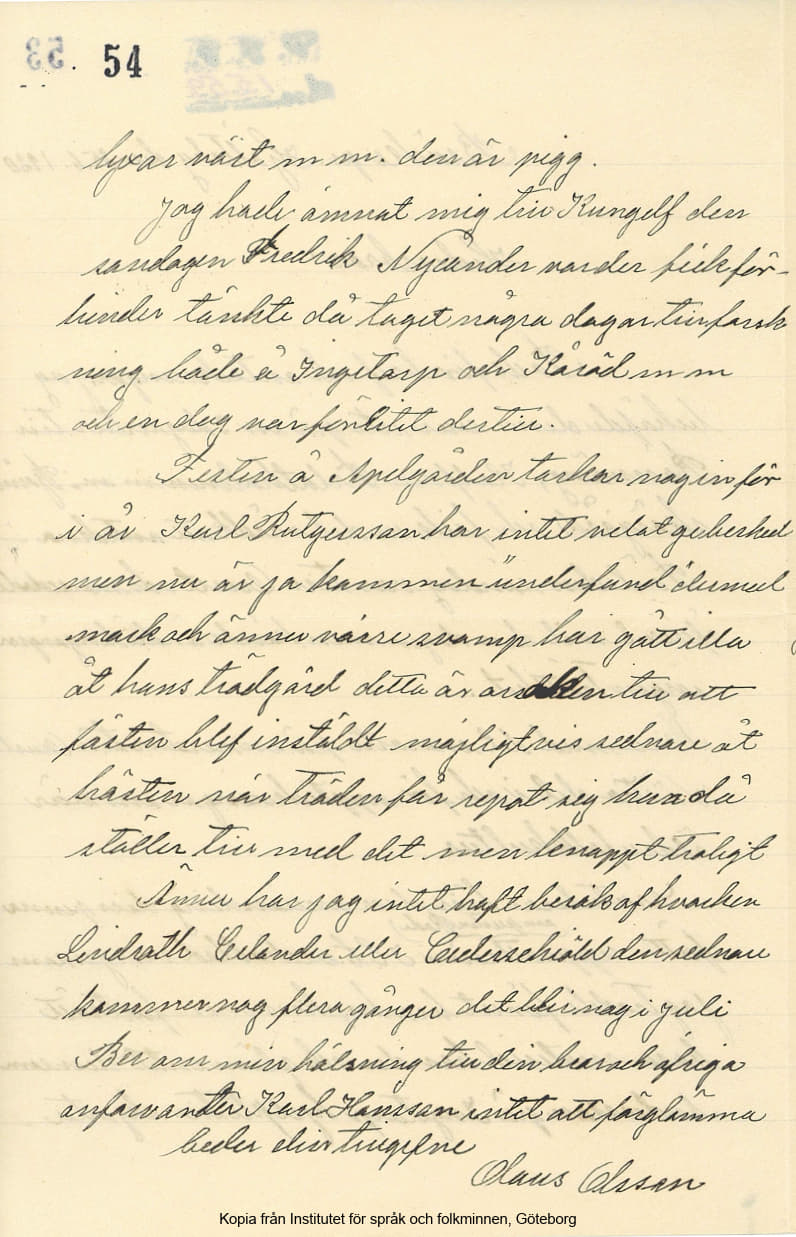 54
byxor väst m m. den är pigg.
Jog hade ämnat mig till Kungelf den
söndagen Fredrik Nycander var der fick för-
hinder tänkte då taget några dagar till forsk
ning både å Ingetorp och Kåröd m m
och en dag var för litet dertill.
Festen å Apelgården torkar nog in för
i år Karl Rutgersson har intet velat ge besked
men nu är ja kommen "underfund" dermed
mask och ännu värre svamp har gått illa
åt hans trädgård detta är orsaken till att
fästen blef instäldt möjligtvis sednare åt
hösten när träden får repat sig han då
ställer till med det men knappt troligt
Ännu har jog intet haft besök af hvarken
Lindroth Celander eller Cederschiöld den sednare
kommer nog flera gånger det blir nog i juli
Ber om min hälsning till din bror och öfriga
anforvanter Karl Hansson intet att förglömma
beder din tillgifne
Olaus Olsson
Kopia från Institutet för språk och folkminnen, Göteborg